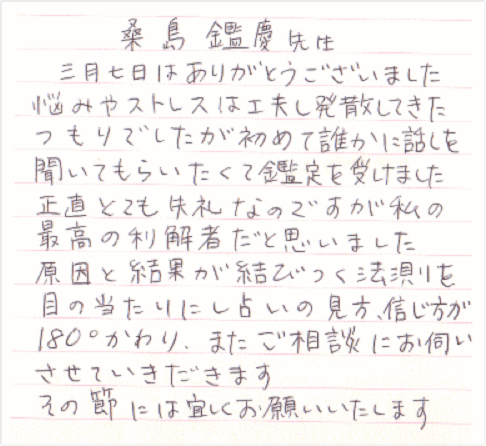 桑島鑑慶先生
三月七日はありがとうございました
悩みやストレスは工夫し発散してきた
つもりでしたが初めて誰かに話しを
聞いてもらいたくて鑑定を受けました
正直とても失礼なのですが私の
最高の利解者だと思いました
原因と結果が結びつく法測りを
目の当たりにし占いの見方、信じ方が
180°かわり、またご相談にお伺い
させていきだきます
その節には宜しくお願いいたします